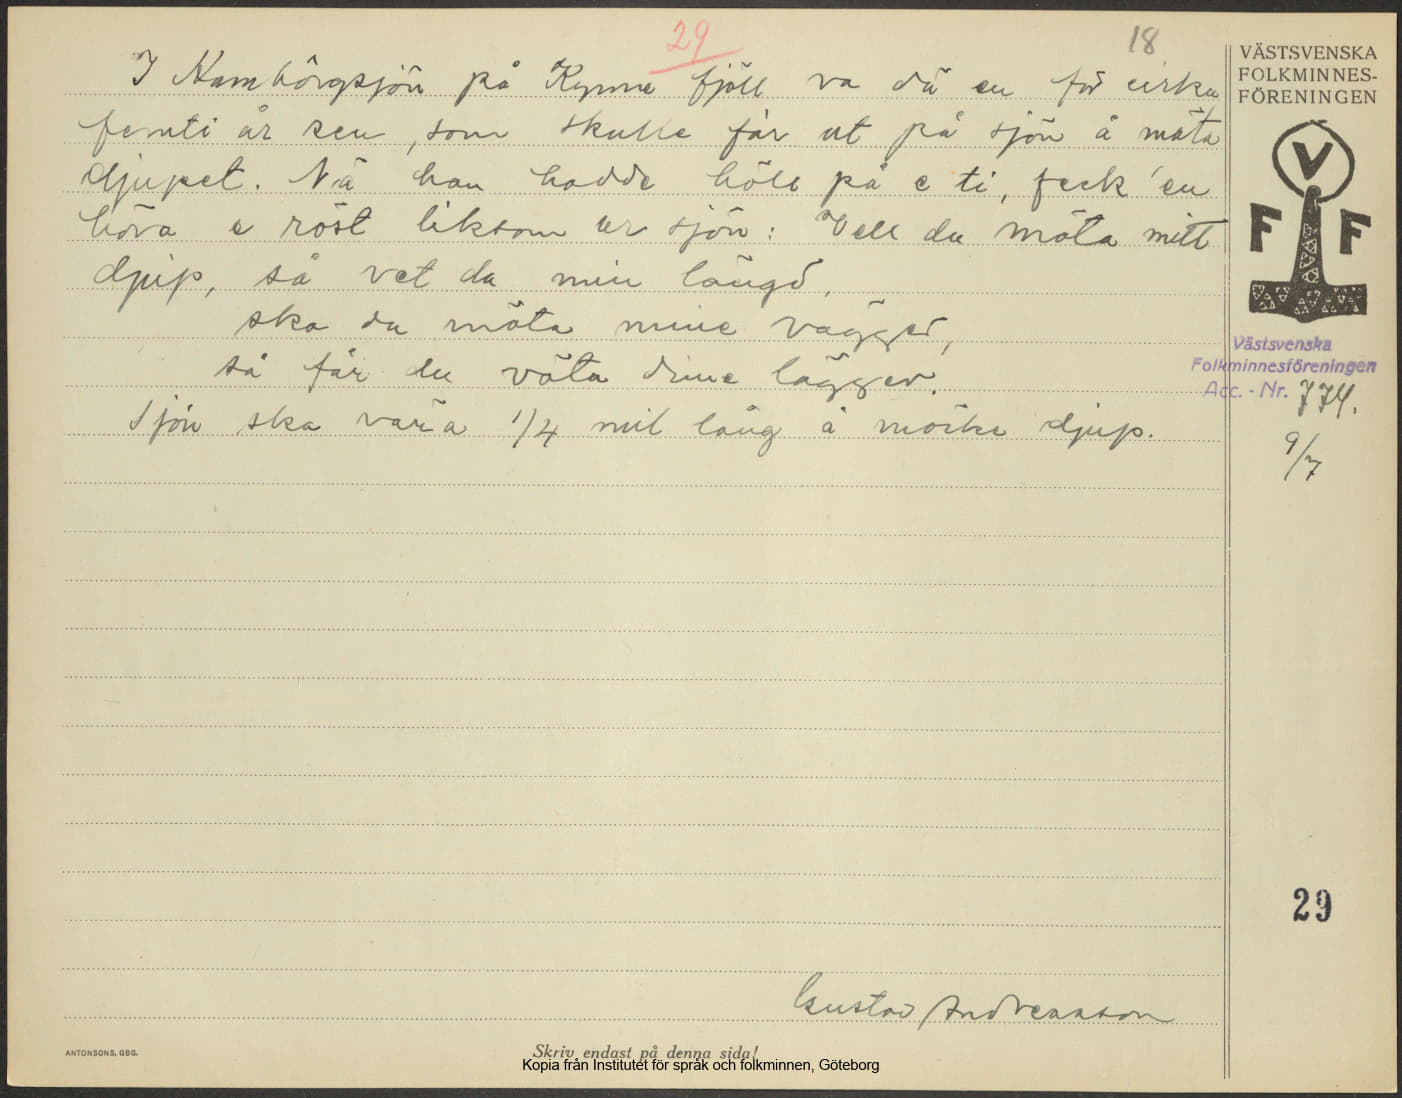 29
18
I Kambôrgsjön på Kynne fjäll va dä en för cirka
femti år sen, som skulle far ut på sjön å mäta
djupet. Nä han hadde höll på e ti, feck 'en
höra e röst liksom ur sjön: Vell du mäta mitt
djup, så vet du min längd,
ska du mäta mine vägger,
så får du väta dine lägger.
Sjön ska vara 1/4 mil lång å möcke djup.
Gustav Andreasson
VÄSTSVENSKA
FOLKMINNES-
FÖRENINGEN
V
F F
Västsvenska
Folkminnesföreningen
Acc. - Nr. 774.
9/7
29
ANTONSONS, GBG.
Skriv endast på denna sida!
Kopia från Institutet för språk och folkminnen, Göteborg